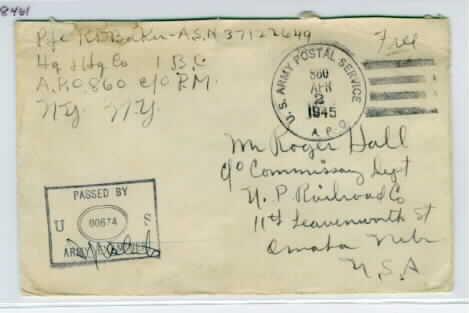 8461
Pfc R. Baker - A.S.N 37122649
Hq & Hq Co 1 B.C
A.P.O. 860 c/o P.M.
N.Y. N.Y.
Free
U.S. ARMY POSTAL SERVICE
860
APR
2
1945
A.P.O.
Mr Roger Hall
c/o Commissary Dept
U. P. Railroad Co
11th Leavenworth St
Omaha Nebr
U.S.A
PASSED BY
U 00674 S
ARMY EXAMINER